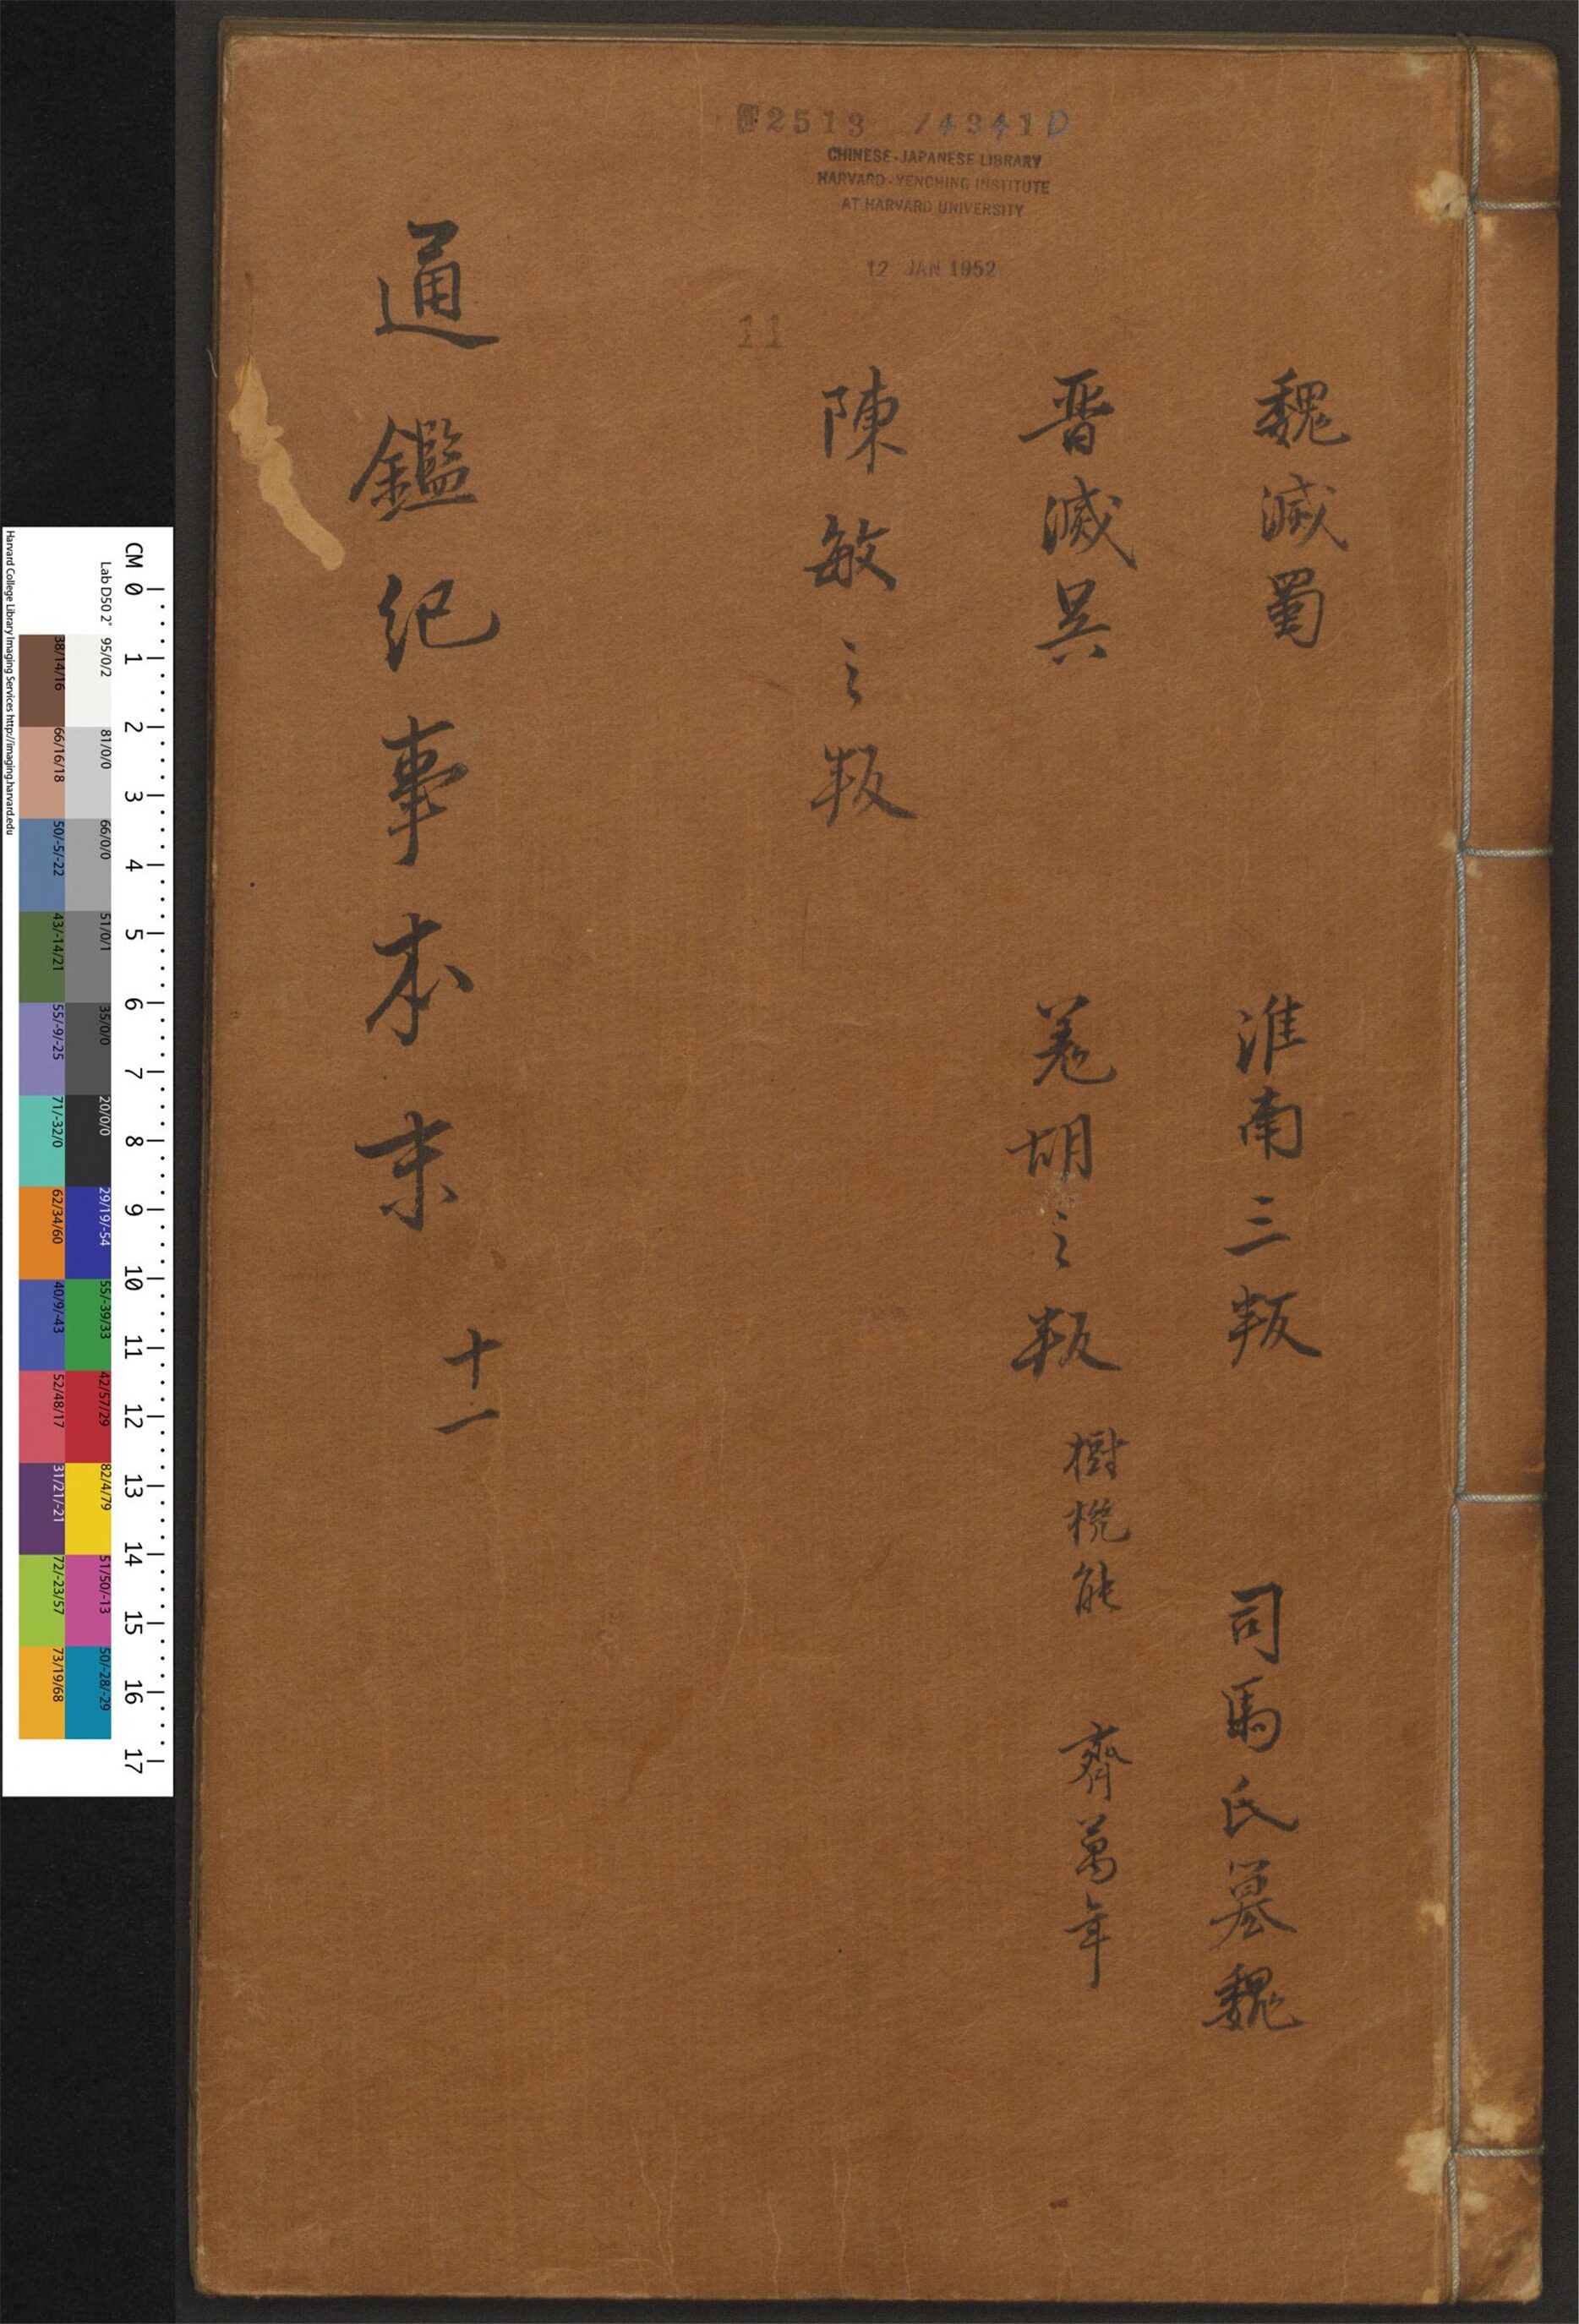 2513 /4341D
CHINESE-JAPANESE LIBRARY
HARVARD-YENCHING INSTITUTE
AT HARVARD UNIVERSITY
12 JAN 1952
11
魏滅蜀 淮南三叛 司馬氏篡魏
晋滅吳 羌胡之叛 樹機能 齊萬年
陳敏之叛
通鑑紀事本末 十一
CM 0 1 2 3 4 5 6 7 8 9 10 11 12 13 14 15 16 17
Lab D50 2° 95/0/2 81/0/0 66/0/0 51/0/1 35/0/0 20/0/0 29/19/-54 55/-39/33 42/57/29 82/4/79 51/50/-13 50/-28/-29
38/14/16 66/16/18 50/-5/-22 43/-14/21 55/-9/-25 71/-32/0 62/34/60 40/9/-43 52/48/17 31/21/-21 72/-23/57 73/19/68
Harvard College Library Imaging Services http://imaging.harvard.edu